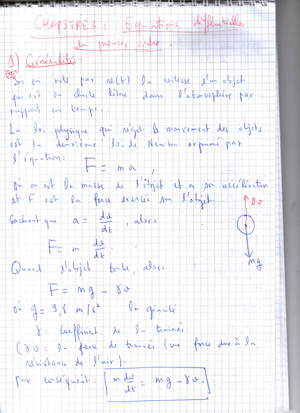 CHAPITRE 3 : Equations différentielles
du premier ordre.
1) Généralités
Soi on note par v(t) la vitesse d'un objet
qui est en chute libre dans l'atmosphère par
rapport au temps.
La loi physique qui régit le mouvement des objets
est la deuxième loi de Newton exprimé par
l'équation:
F = m a,
où m est la masse de l'objet et a son accélération
et F est la force exercée sur l'objet.
Sachant que a = dv/dt, alors
F = m dv/dt.
Quand l'objet tombe, alors
F = mg - γv
où g = 9,8 m/s² la gravité
γ : coefficient de la trainée.
(γv : la force de trainée (une force due à la
résistance de l'air).
par conséquent : m dv/dt = mg - γv.
γv
mg